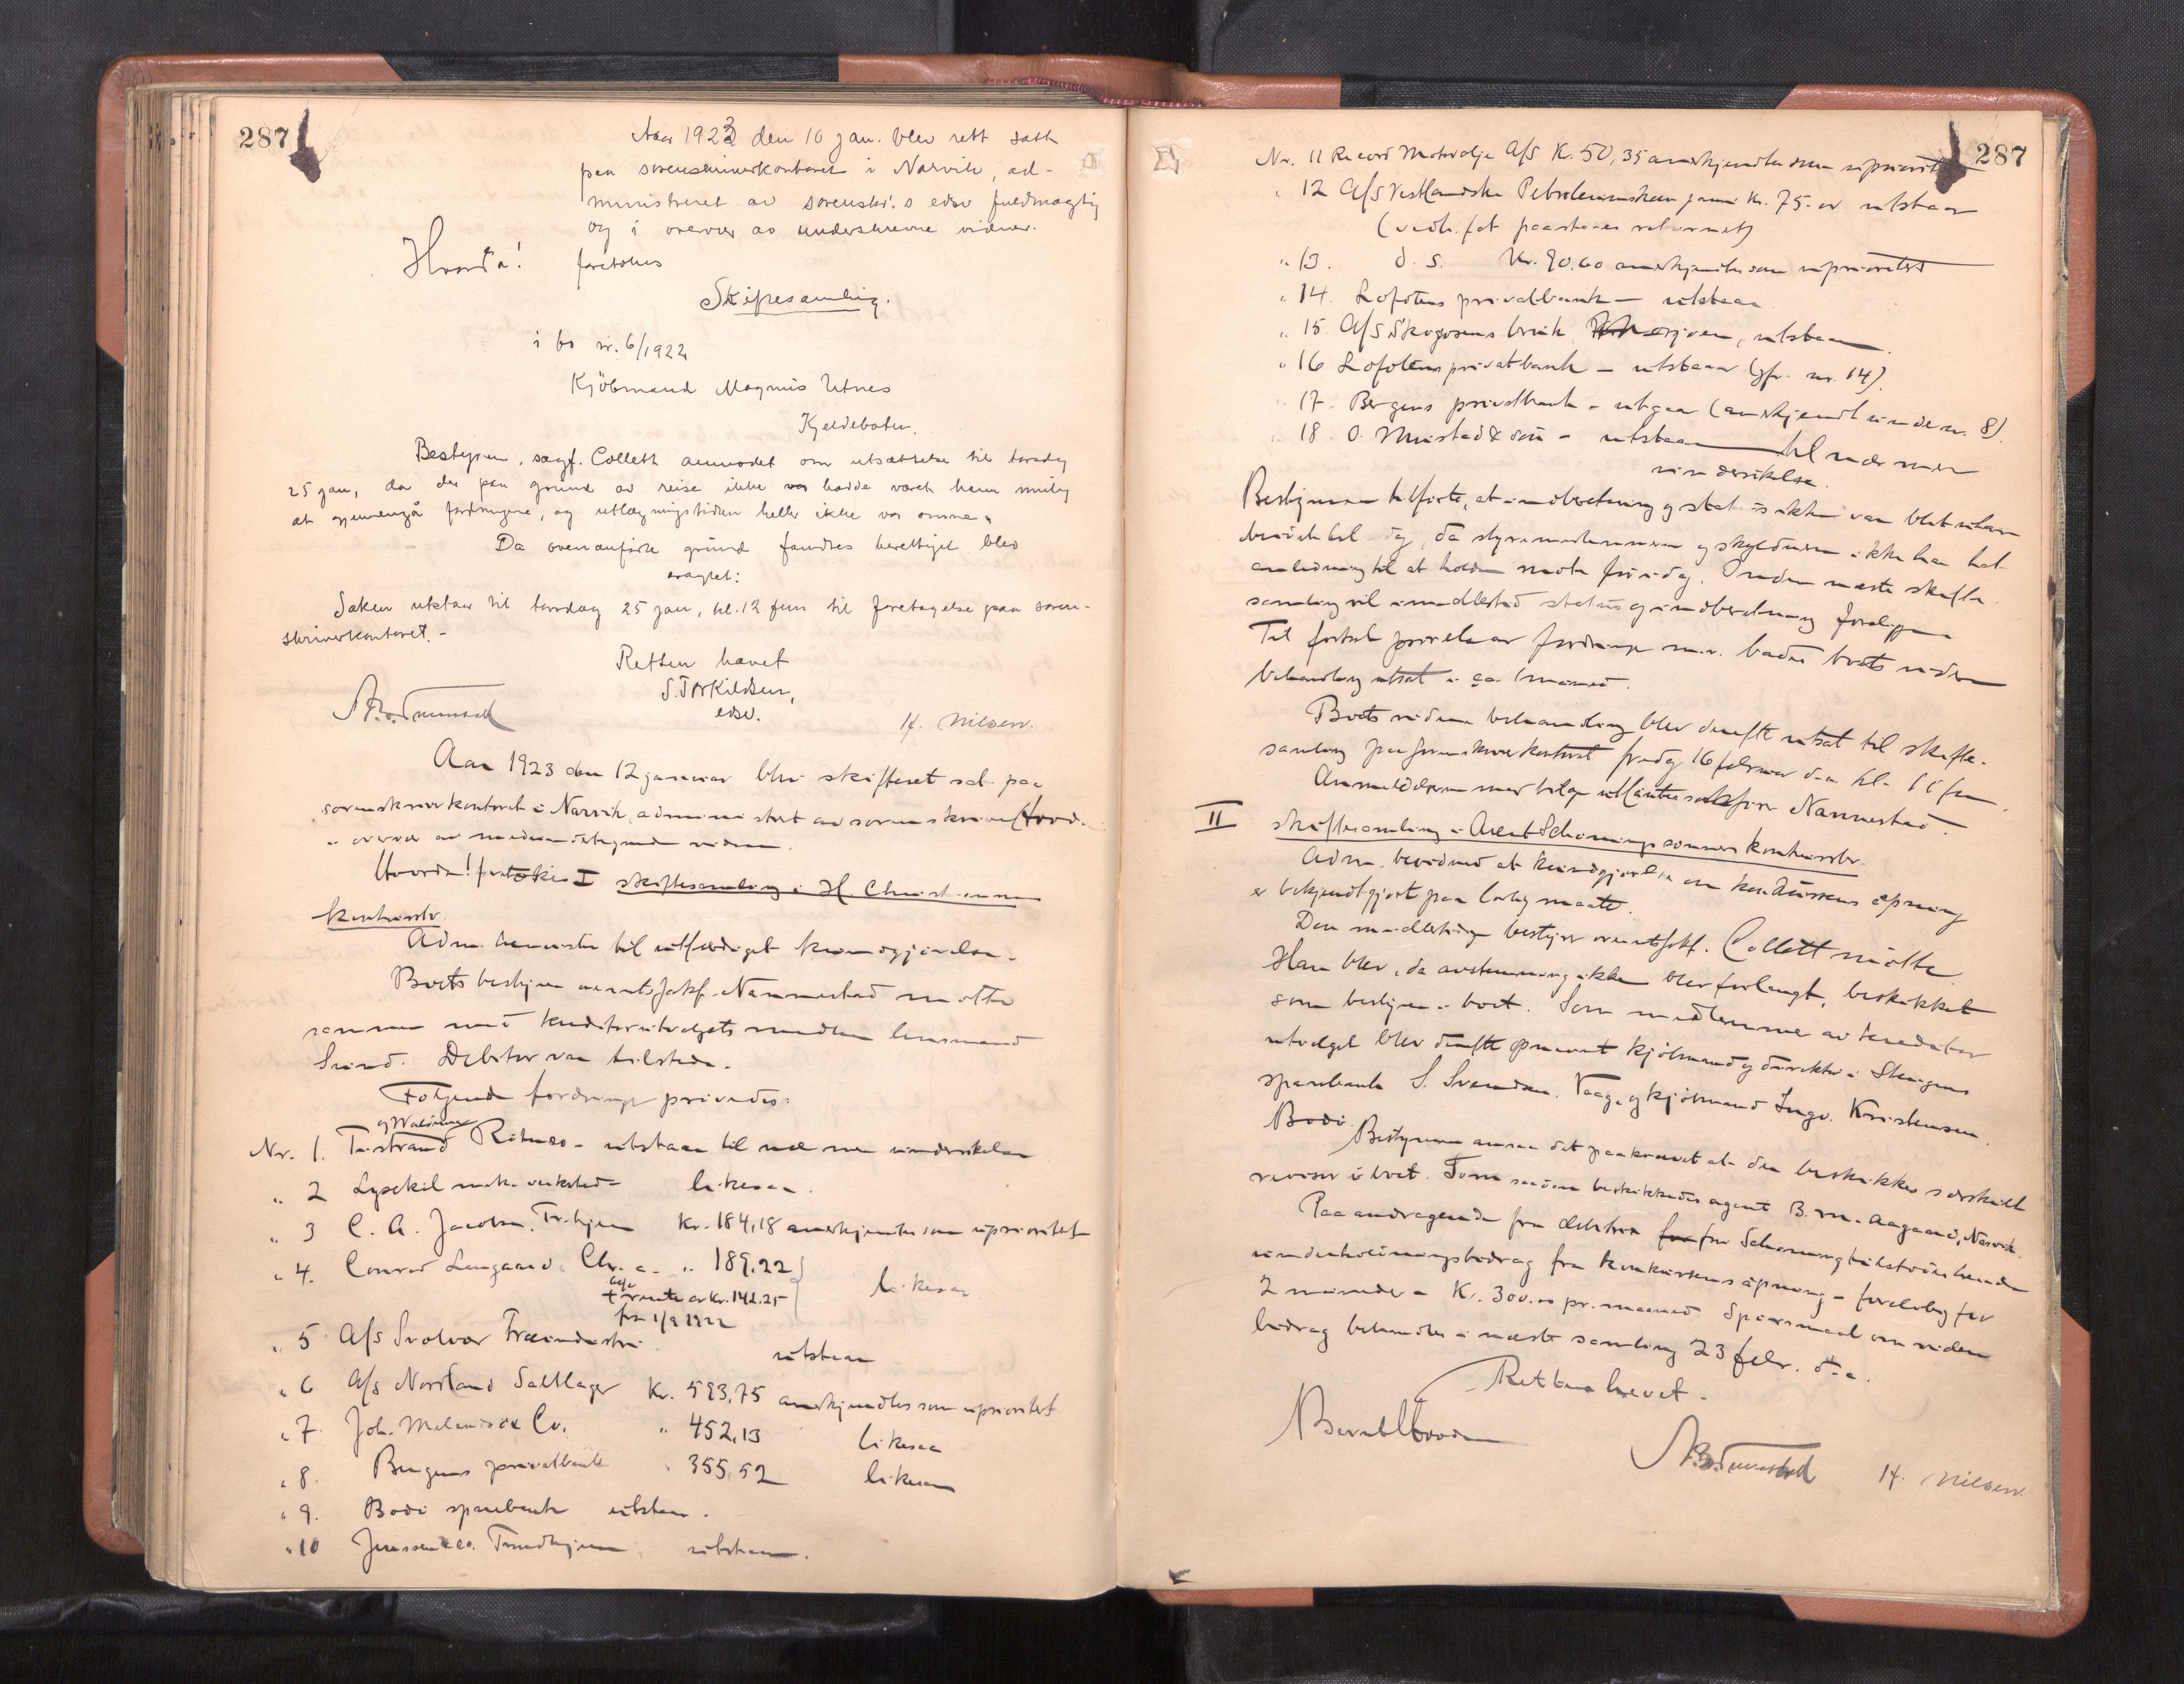 287
Aar 1923 den 10 jan. blev rett satt
paa sorenskriverkontoret i Narvik, ad-
ministreret av sorenskr.s edsv fuldmægtig
og i overvær av underskrevne vidner.
Hvorda! foretokes
Skiftesamling.
i bo nr. 6/1922
Kjöbmand Magnus Utnes
Kjeldebotn.
Bestyren, sagf. Collett anmodet om utsættelse til torsdag
25 jan, da det paa grund av reise ikke var hadde været ham mulig
at gjennemgå fordringene, og utlægningstiden heller ikke var omme.
Da ovenanförte grund fandtes berettiget blev
avsagt:
Saken utstaar til torsdag 25 jan, kl. 12 fm til foretagelse paa soren-
skriverkontoret.-
Retten hævet
S. Torkildsen,
edsv.
H. Nilsen.
Aar 1923 den 12 januar blev skifteret sat paa
sorenskriverkontoret i Narvik, administret av sorenskriver
i overvær av medundertegnede vidner.
Hvorda! foretokes I skiftesamling i H. Christensens
konkursbo.
Adm. henviste til utfærdiget kundgjörelse.
Boets bestyrer overretssakf. Nannestad mötte
sammen med kreditorutvalgets medlem lensmand
Sund. Debitor var tilstede.
Fölgende fordringer prövedes:
Nr. 1. utstaar til nærmere undersökelse
" 2 Lysekil mek. verksted - likesaa.
" 3 C. A. Jacobsen, Tr.hjem Kr. 184,18 anerkjendtes som uprioritet
" 4. Conrad Langaard, Chr.a. " 189,22 likesaa
+ rente av kr. 142.25
fra 1/9 1922
" 5 A/S Svolvær Træindustri utstaar
" 6 A/S Nordland Saltlager Kr. 593,75 anerkjendtes som uprioritet
" 7 Joh. & Co. " 452,13 likesaa
" 8. Bergens privatbank " 355,52 likesaa
" 9. Bodö sparebank utstaar.
" 10 Trondhjem utstaar.
287
Nr. 11 Record Motorolje A/S K. 50,35 anerkjendtes som uprioritet
" 12 A/S Vestlandske Petroleumskompani Kr. 75.- utstaar
(vedk. fat paastaaes returnert)
" 13. d. s. Kr. 90.60 anerkjendtes som uprioritet
" 14. Lofotens privatbank - utstaar
" 15. A/S bruk Mosjöen, utstaar.
" 16 Lofotens privatbank - utstaar (jfr. nr. 14).
" 17. Bergens privatbank - utgaar (anerkjendt under nr. 8).
" 18. O. Mustad & Sön - utstaar til nærmere
undersökelse.
Bestyreren tilförte, at indberetning og status ikke var blit utar-
beidet til idag, da styremedlemmene og skyldneren ikke har hat
anledning til at holde möte för idag. Inden næste skifte-
samling vil imidlertid status og indberetning foreligge.
Til fortsat prövelse av fordringer m.v. bades boets videre
behandling utsat i ca 1 maaned.
Boets videre behandling blev derefter utsat til skifte-
samling paa sorenskriverkontoret fredag 16 februar d.a. kl. 11 fm.
Anmeldelserne med bilag utlaantes sakförer Nannestad.
II skiftesamling i Arent Schönings sönners konkursbo.
Adm. bevidnet at kundgjörelse om konkursens åpning
er bekjendtgjort paa lovlig maate.
Den midlertidige bestyrer overretssakf. Collett mötte
Han blev, da avstemning ikke blev forlangt, beskikket
som bestyrer i boet. Som medlemmer av kreditor
utvalget blev derefter opnævnt kjöbmand og direktör i Steigens
sparebank S. Svendsen, Vaag, og kjöbmand Ingv. Kristensen,
Bodö.
Bestyreren ansaa det paakrævet at der beskikkes særskilt
revisor i boet. Som saadan beskikkedes agent B. M. Aagaard, Narvik.
Paa andragende fra debitor for fru Schöning tilstodes hende
underholdningsbidrag fra konkursens åpning - forelöbig for
2 maaneder à Kr. 300.00 pr. maaned. Spörsmaal om videre
bidrag behandles i næste samling 23 febr. d.a.
Retten hævet.
H. Nilsen.